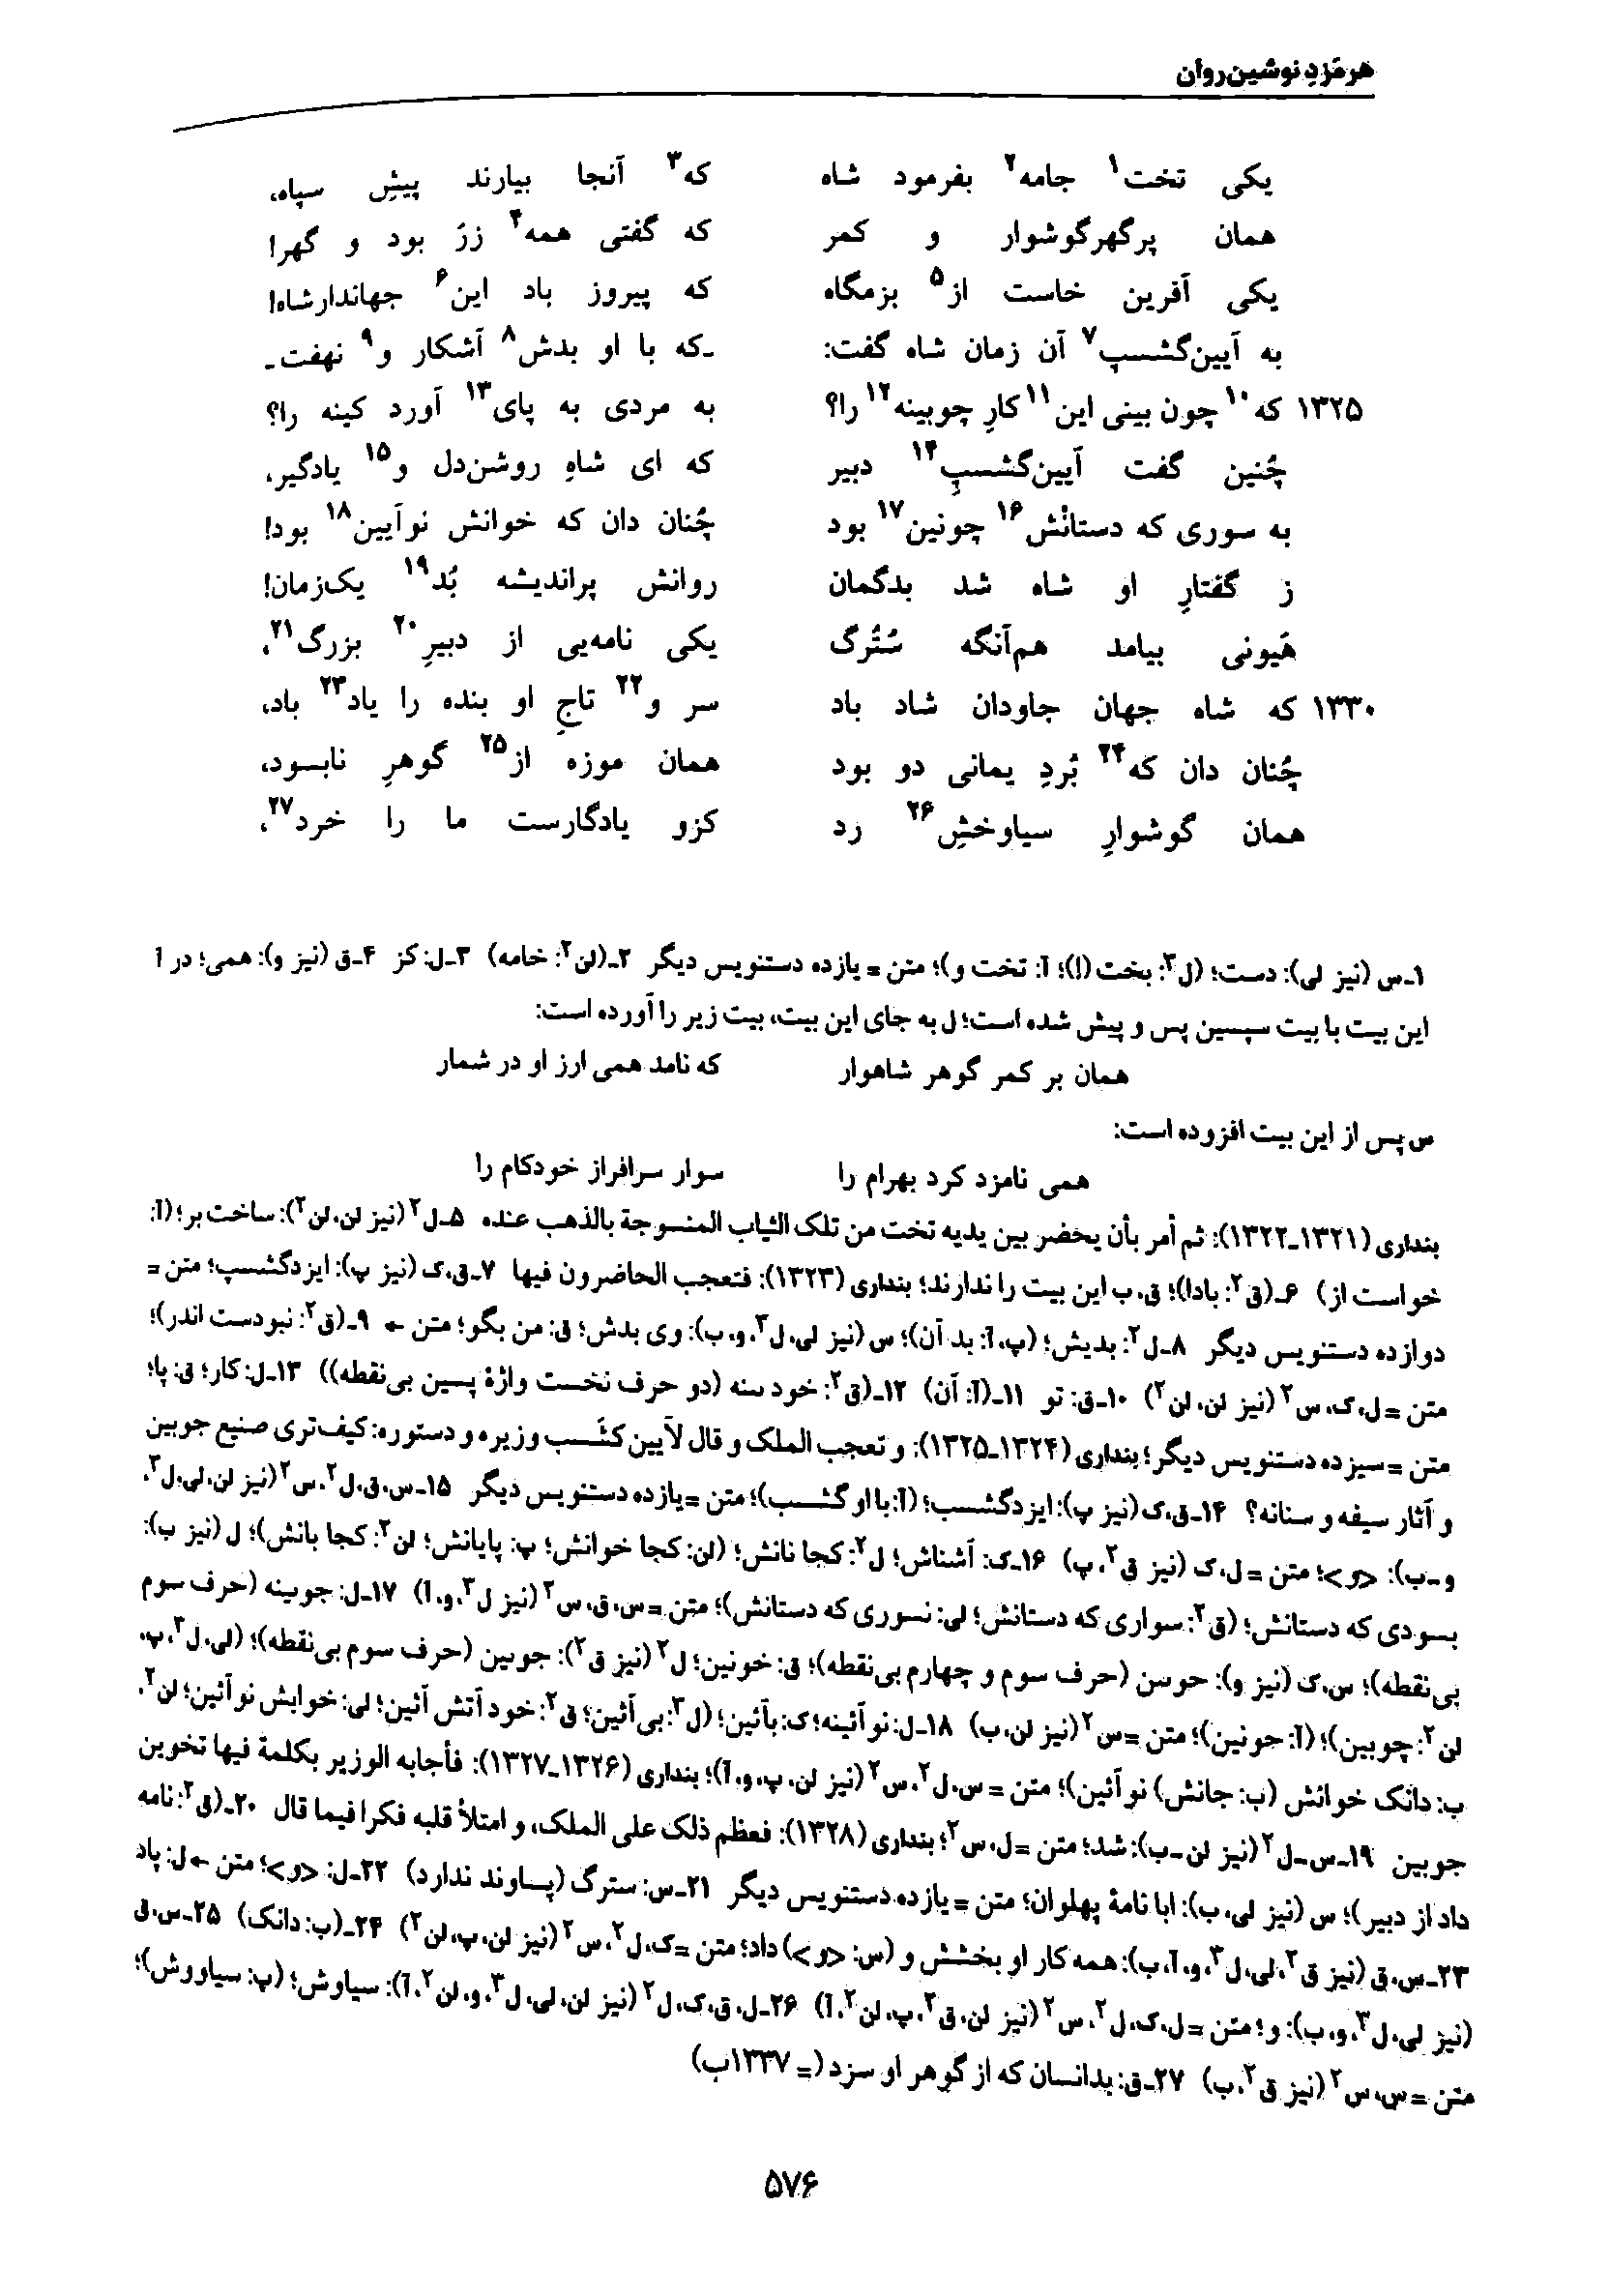 هرمَزدِ نوشین‌روان
یکی تخت۱ جامه۲ بفرمود شاه که۳ آنجا بیارند پیشِ سپاه،
همان پرگهرگوشوار و کمر که گفتی همه۴ زرّ بود و گهر!
یکی آفرین خاست از۵ بزمگاه که پیروز باد این۶ جهاندارشاه!
به آیین‌گشسپ۷ آن زمان شاه گفت: ـ‌که با او بدش۸ آشکار و۹ نهفت‌ـ
۱۳۲۵ که۱۰ چون بینی این۱۱ کارِ چوبینه۱۲ را؟ به مردی به پای۱۳ آورد کینه را؟
چُنین گفت آیین‌گشسپِ۱۴ دبیر که ای شاهِ روشن‌دل و۱۵ یادگیر،
به سوری که دستانْش۱۶ چونین۱۷ بود چُنان دان که خوانش نوآیین۱۸ بود!
ز گفتارِ او شاه شد بدگمان روانش پراندیشه بُد۱۹ یک‌زمان!
هَیونی بیامد هم‌آنگه سُتُرگ یکی نامه‌یی از دبیرِ۲۰ بزرگ۲۱،
۱۳۳۰ که شاه جهان جاودان شاد باد سر و۲۲ تاجِ او بنده را یاد۲۳ باد،
چُنان دان که۲۴ بُردِ یمانی دو بود همان موزه از۲۵ گوهرِ نابسود،
همان گوشوارِ سیاوخشِ۲۶ رد کزو یادگارست ما را خرد۲۷،
۱ـ س (نیز لی): دست؛ (ل۳: بخت (!)؛ آ: تخت و)؛ متن = یازده دستنویس دیگر ۲ـ (لن۲: خامه) ۳ـ ل: کز ۴ـ ق (نیز و): همی؛ در آ
این بیت با بیت سپسین پس و پیش شده است؛ ل به جای این بیت، بیت زیر را آورده است:
همان بر کمر گوهر شاهوار که نامد همی ارز او در شمار
س پس از این بیت افزوده است:
همی نامزد کرد بهرام را سوار سرافراز خودکام را
بنداری (۱۳۲۱ـ۱۳۲۲): ثم أمر بأن یحضر بین یدیه تخت من تلک الثیاب المنسوجة بالذهب عنده ۵ـ ل۲ (نیز لن، لن۲): ساخت بر؛ (آ:
خواست از) ۶ـ (ق۲: بادا)؛ ق، ب این بیت را ندارند؛ بنداری (۱۳۲۳): فتعجب الحاضرون فیها ۷ـ ق، ک (نیز پ): ایزدگشسپ؛ متن =
دوازده دستنویس دیگر ۸ـ ل۲: بدیش؛ (پ، آ: بد آن)؛ س (نیز لی، ل۳، و، ب): وی بدش؛ ق: من بگو؛ متن ← ۹ـ (ق۲: نبودست اندر)؛
متن = ل، ک، س۲ (نیز لن، لن۲) ۱۰ـ ق: تو ۱۱ـ (آ: آن) ۱۲ـ (ق۲: خود سنه (دو حرف نخست واژهٔ پسین بی‌نقطه)) ۱۳ـ ل: کار؛ ق: پا؛
متن = سیزده دستنویس دیگر؛ بنداری (۱۳۲۴ـ۱۳۲۵): و تعجب الملک و قال لآیین کشسب وزیره و دستوره: کیف تری صنیع جوبین
و آثار سیفه و سنانه؟ ۱۴ـ ق، ک (نیز پ): ایزدگشسب؛ (آ: با او گشسب)؛ متن = یازده دستنویس دیگر ۱۵ـ س، ق، ل۲، س۲ (نیز لن، لی، ل۳،
و ـ ب): <و>؛ متن = ل، ک (نیز ق۲، پ) ۱۶ـ ک: آشناش؛ ل۲: کجا نانش؛ (لن: کجا خوانش؛ پ: پایانش؛ لن۲: کجا بانش)؛ ل (نیز ب):
بسودی که دستانش؛ (ق۲: سواری که دستانش؛ لی: نسوری که دستانش)؛ متن = س، ق، س۲ (نیز ل۳، و، آ) ۱۷ـ ل: جوینه (حرف سوم
بی‌نقطه)؛ س، ک (نیز و): حوسن (حرف سوم و چهارم بی‌نقطه)؛ ق: خونین؛ ل۲ (نیز ق۲): جوسین (حرف سوم بی‌نقطه)؛ (لی، ل۳، پ،
لن۲: چوبین)؛ (آ: جونین)؛ متن = س۲ (نیز لن، ب) ۱۸ـ ل: نو آئینه؛ ک: بآئین؛ (ل۳: بی آئین؛ ق۲: خود آتش آئین؛ لی: خوابش نو آئین؛ لن۲،
ب: دانک خوانش (ب: جانش) نو آئین)؛ متن = س، ل۲، س۲ (نیز لن، پ، و، آ)؛ بنداری (۱۳۲۶ـ۱۳۲۷): فأجابه الوزیر بکلمة فیها تخوین
جوبین ۱۹ـ س ـ ل۲ (نیز لن ـ ب): شد؛ متن = ل، س۲؛ بنداری (۱۳۲۸): فعظم ذلک علی الملک، و امتلأ قلبه فکرا فیما قال ۲۰ـ (ق۲: نامه
داد از دبیر)؛ س (نیز لی، ب): ابا نامهٔ پهلوان؛ متن = یازده دستنویس دیگر ۲۱ـ س: سترگ (پساوند ندارد) ۲۲ـ ل: <و>؛ متن ← ل: پاد
۲۳ـ س، ق (نیز ق۲، لی، ل۳، و، آ، ب): همه کار او بخشش و (س: <و>) داد؛ متن = ک، ل۲، س۲ (نیز لن، پ، لن۲) ۲۴ـ (ب: دانک) ۲۵ـ س، ق
(نیز لی، ل۳، و، ب): و؛ متن = ل، ک، ل۲، س۲ (نیز لن، ق۲، پ، لن۲، آ) ۲۶ـ ل، ق، ک، ل۲ (نیز لن، لی، ل۳، و، لن۲، آ): سیاوش؛ (پ: سیاووش)؛
متن = س، س۲ (نیز ق۲، ب) ۲۷ـ ق: بدانسان که از گوهر او سزد (= ۱۳۳۷ب)
۵۷۶